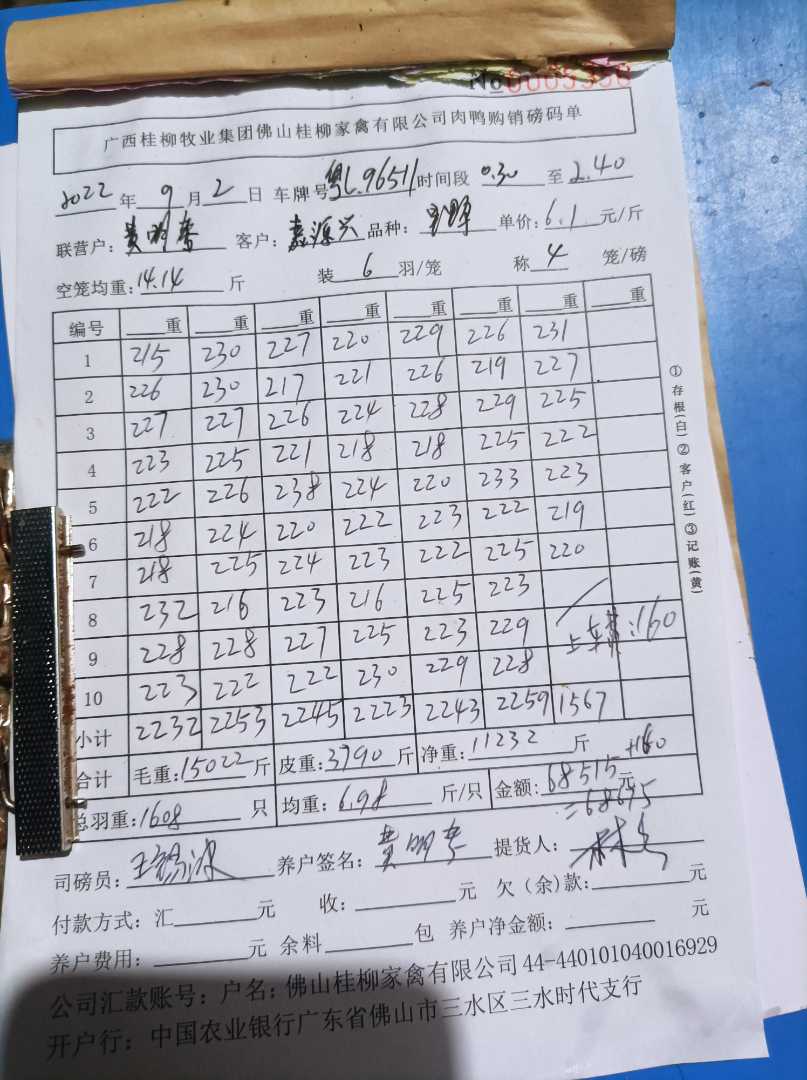 No 0005350
广西桂柳牧业集团佛山桂柳家禽有限公司肉鸭购销磅码单
2022年9月2日 车牌号粤L.96511时间段 0.30至2.40
联营户:黄明春 客户:嘉源兴 品种: 单价:6.1元/斤
空笼均重:14.14斤 装6羽/笼 称4笼/磅
编号 重 重 重 重 重 重 重 重
1 215 230 227 220 229 226 231
2 226 230 217 221 226 219 227
3 227 227 226 224 228 229 225
4 223 225 221 218 218 225 222
5 222 226 238 224 220 233 223
6 218 224 220 222 223 222 219
7 218 225 224 223 222 225 220
8 232 216 223 216 225 223
9 228 228 227 225 223 229 上车费:160
10 223 222 222 230 229 228
小计 2232 2253 2245 2223 2243 2259 1567
合计 毛重:15022斤 皮重:3790斤 净重:11232斤
总羽重:1608只 均重:6.98斤/只 金额:68515元 +160
=68675
司磅员: 养户签名:黄明春 提货人:
付款方式:汇 元 收: 元 欠(余)款: 元
养户费用: 元 余料 包 养户净金额: 元
公司汇款账号:户名:佛山桂柳家禽有限公司44-440101040016929
开户行:中国农业银行广东省佛山市三水区三水时代支行
①存根(白)②客户(红)③记账(黄)